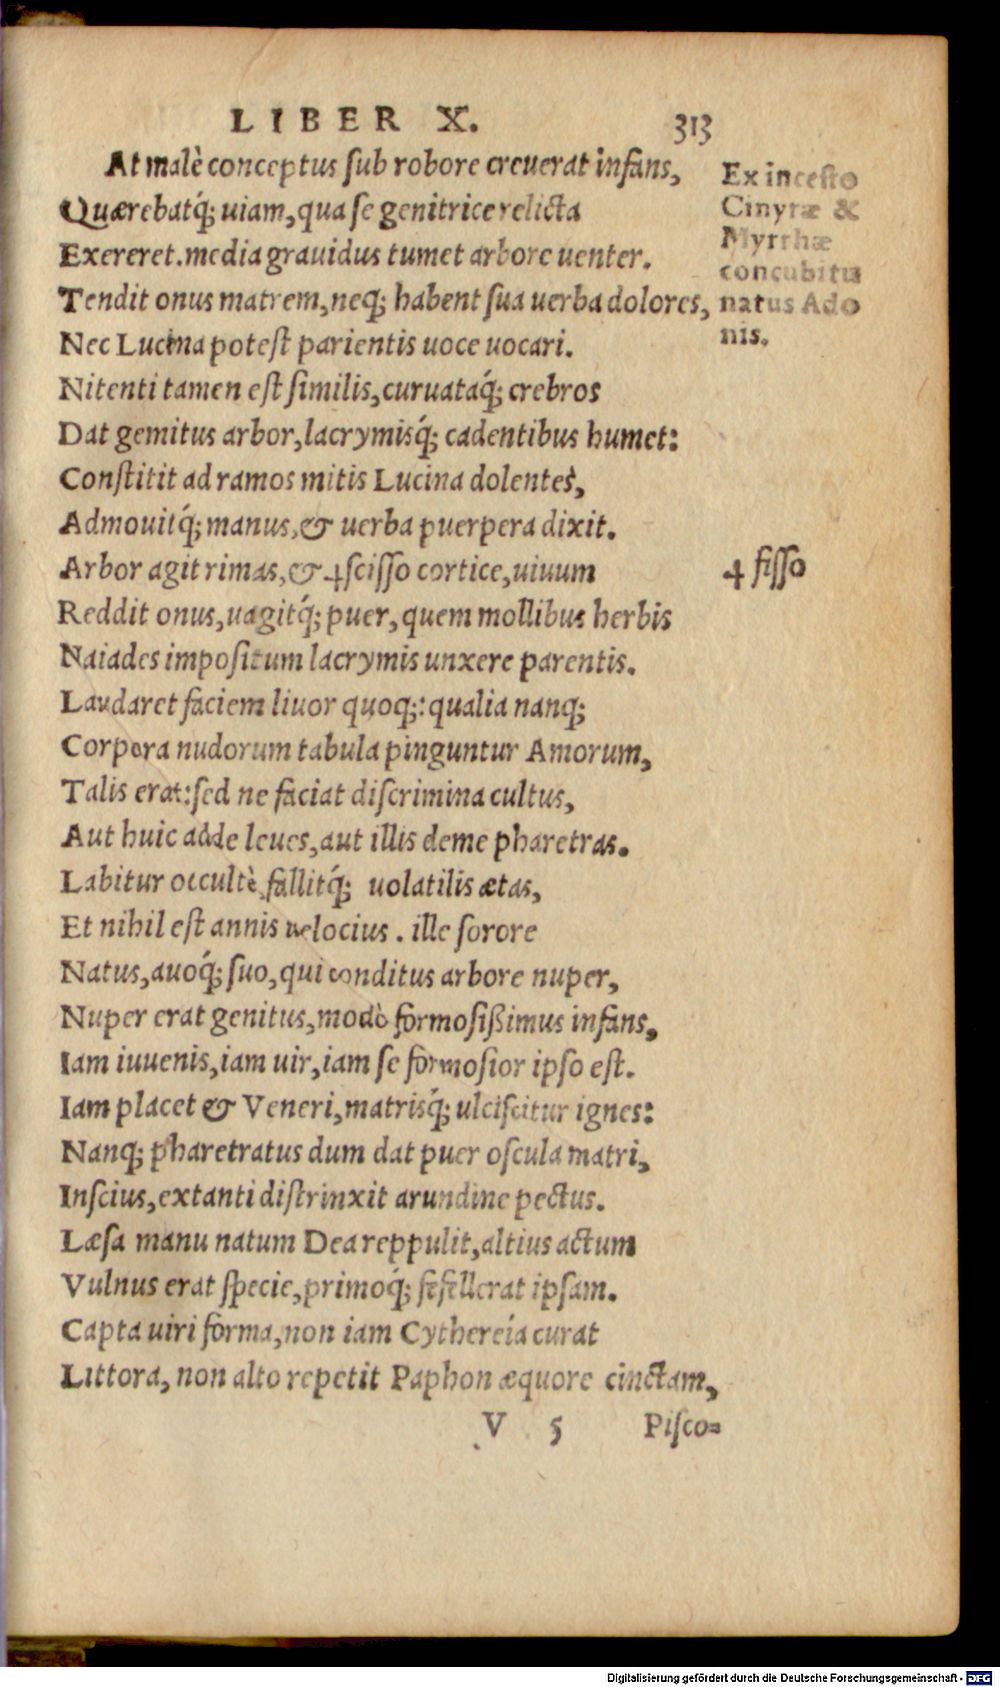 LIBER X. 313
At malè conceptus ſub robore creuerat infans,
Quærebatq́; uiam, qua ſe genitrice relicta
Exereret. media grauidus tumet arbore uenter.
Tendit onus matrem, neq; habent ſua uerba dolores,
Nec Lucina poteſt parientis uoce uocari.
Nitenti tamen eſt ſimilis, curuataq́; crebros
Dat gemitus arbor, lacrymisq́; cadentibus humet:
Conſtitit ad ramos mitis Lucina dolentes,
Admouitq́; manus, & uerba puerpera dixit.
Arbor agit rimas, & ɥſciſſo cortice, uiuum
Reddit onus, uagitq́; puer, quem mollibus herbis
Naiades impoſitum lacrymis unxere parentis.
Laudaret faciem liuor quoq;: qualia nanq;
Corpora nudorum tabula pinguntur Amorum,
Talis erat: ſed ne faciat diſcrimina cultus,
Aut huic adde leues, aut illis deme pharetras.
Labitur occultè, fallitq́; uolatilis ætas,
Et nihil eſt annis uelocius. ille ſorore
Natus, auoq́; ſuo, qui conditus arbore nuper,
Nuper erat genitus, modò formoſißimus infans,
Iam iuuenis, iam uir, iam ſe formoſior ipſo eſt.
Iam placet & Veneri, matrisq́; ulciſcitur ignes:
Nanq; pharetratus dum dat puer oſcula matri,
Inſcius, extanti diſtrinxit arundine pectus.
Læſa manu natum Dea reppulit, altius actum
Vulnus erat ſpecie, primoq́; fefellerat ipſam.
Capta uiri forma, non iam Cythereía curat
Littora, non alto repetit Paphon æquore cinctam,
V 5 Piſco=
Ex inceſto
Cinyræ &
Myrrhæ
concubitu
natus Ado
nis.
ɥ fiſſo
Digitalisierung gefördert durch die Deutsche Forschungsgemeinschaft - DFG